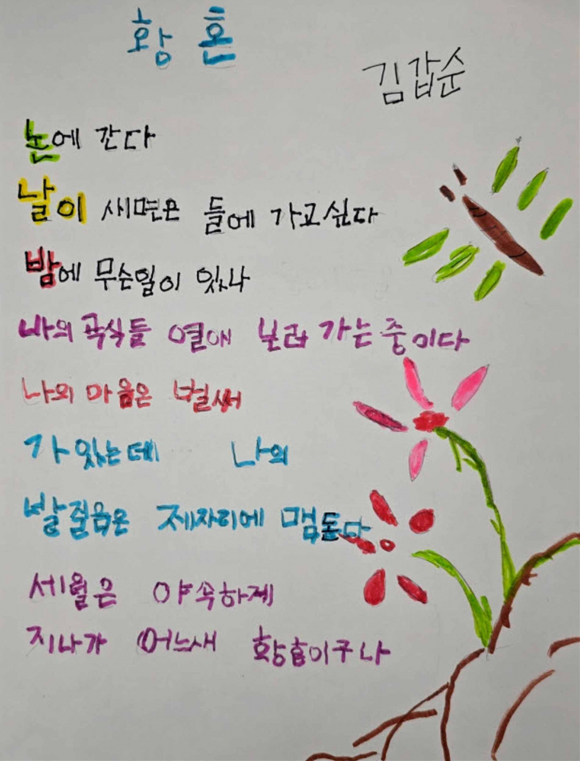 황혼
김갑순
논에 간다
날이 새면은 들에 가고싶다
밤에 무슨일이 있나
나의 곡식들 열애 보라 가는 중이다
나의 마음은 벌써
가 있는데 나의
발걸음은 제자리에 맴돈다
세월은 야속하게
지나가 어느새 황혼이구나